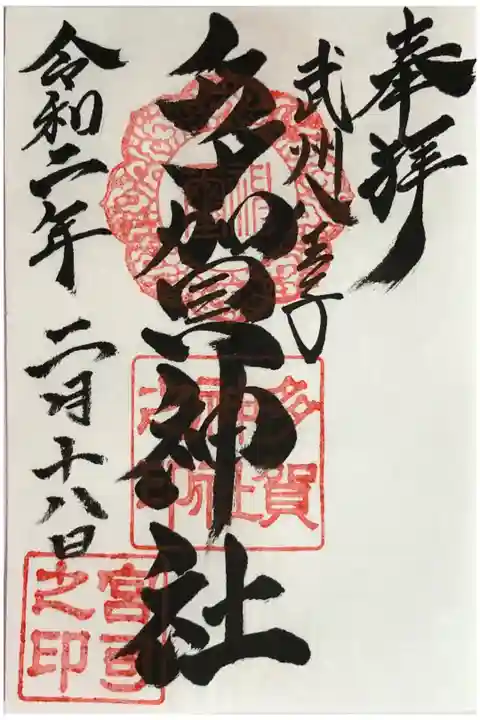 奉拝
武州八王子
多賀神社
令和二年 二月十八日
多賀
神社
之印
宮司
之印